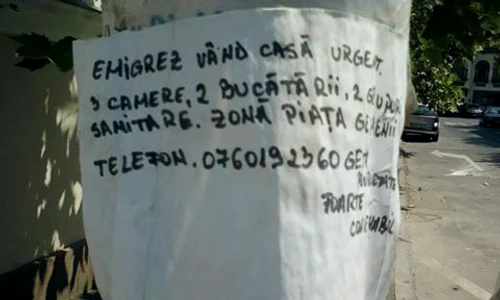 EMIGREZ VÂND CASĂ URGENT.
3 CAMERE, 2 BUCĂTĂRII, 2 GRUPURI
SANITARE. ZONĂ PIAȚA GEMENII
TELEFON. 0760192360
FOARTE
CONVENABIL